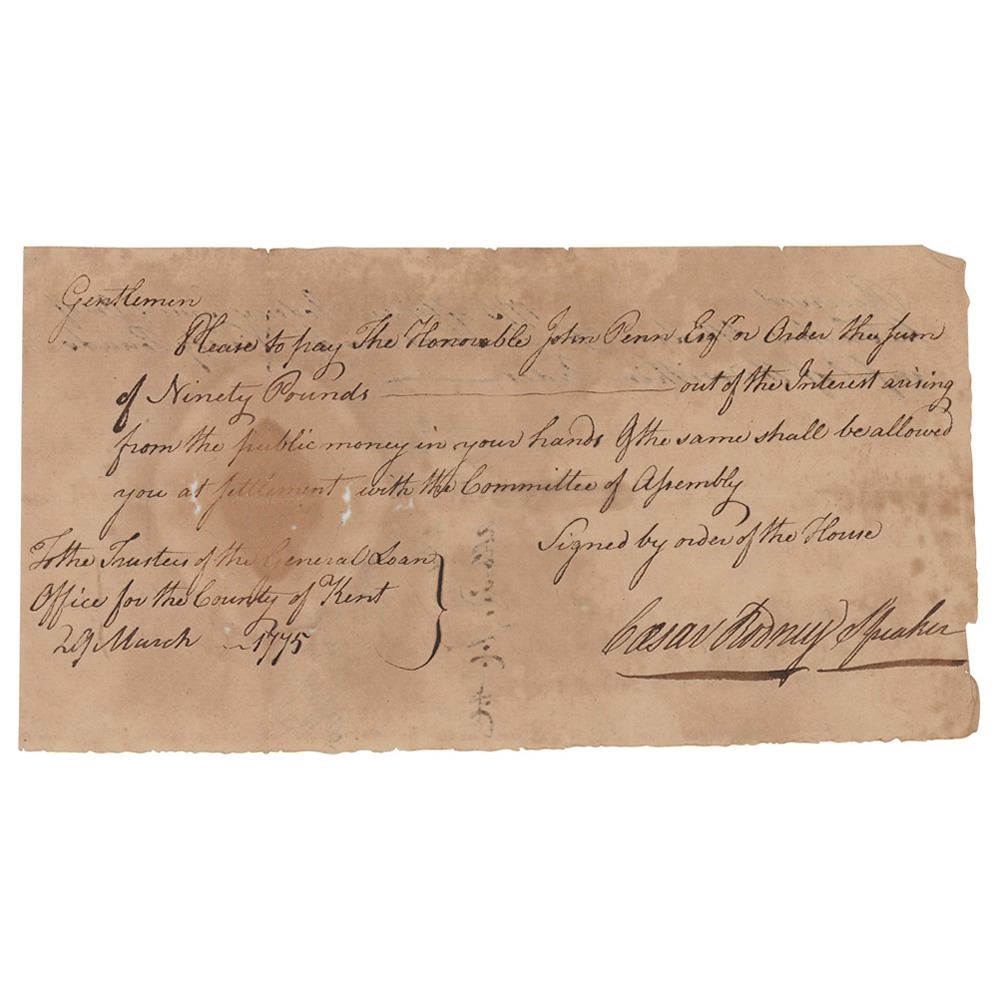 Gentlemen
Please to pay The Honorable John Penn Esqr. or Order the sum
of Ninety Pounds ——— out of the Interest arising
from the public money in your hands & the same shall be allowed
you at settlement with the Committee of Assembly
Signed by order of the House
To the Trustees of the General Loan
Office for the County of Kent
29 March 1775
Cæsar Rodney Speaker